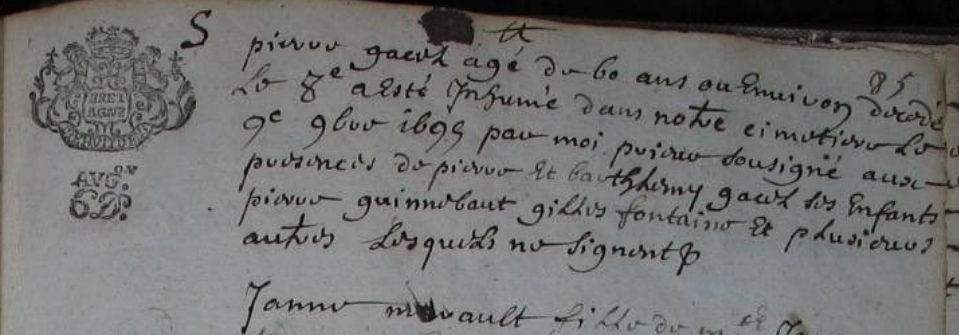 S
85
BRET
AGNE
AVG.ON
6D.
pierre gacel agé de 60 ans ou Enuiron decedé
Le 8e a Esté Inhumé dans notre cimetiere Le
9e 9bre 1695 par moi prieur sousigné aux
presences de pierre Et barthlemy gacel ses Enfants
pierre guinnebaut gilles fontaine Et plusieurs
autres Lesquels ne signent
Janne fille de